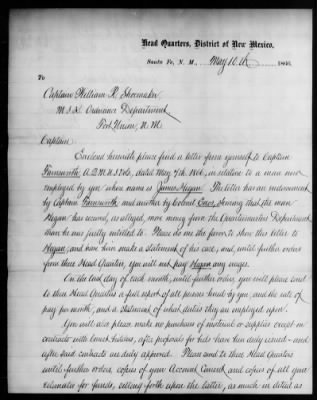 Head Quarters, District of New Mexico,
Santa Fe, N. M., May 10th, 1866.
To
Captain William R. Shoemaker
M.S.K. Ordnance Department
Fort Union, N.M.
Captain
Enclosed herewith please find a letter from yourself to Captain
Farnsworth A.Q.M. U.S. Vols, dated May 4th 1866, in relation to a man now
employed by you whose name is James Hagan. The letter has an endorsement
by Captain Farnsworth and another by Colonel Enos, showing that the man
Hagan has received, as alleged, more money from the Quartermasters Department
than he was justly entitled to. Please do me the favor to show this letter to
Hagan, and have him make a statement of his case, and, until further orders
from these Head Quarters, you will not pay Hagan any wages.
On the last day of each month, until further orders, you will please send
to these Head Quarters a full report of all persons hired by you, and the rate of
pay per month, and a statement of what duties they are employed upon.
You will also please make no purchase of material or supplies except on
contracts with lowest bidders, after proposals for bids have been duly issued and
after said contracts are duly approved. Please send to these Head Quarters
until further orders, copies of your Account Current and copies of all your
estimates for funds, setting forth upon the latter, as much in detail as